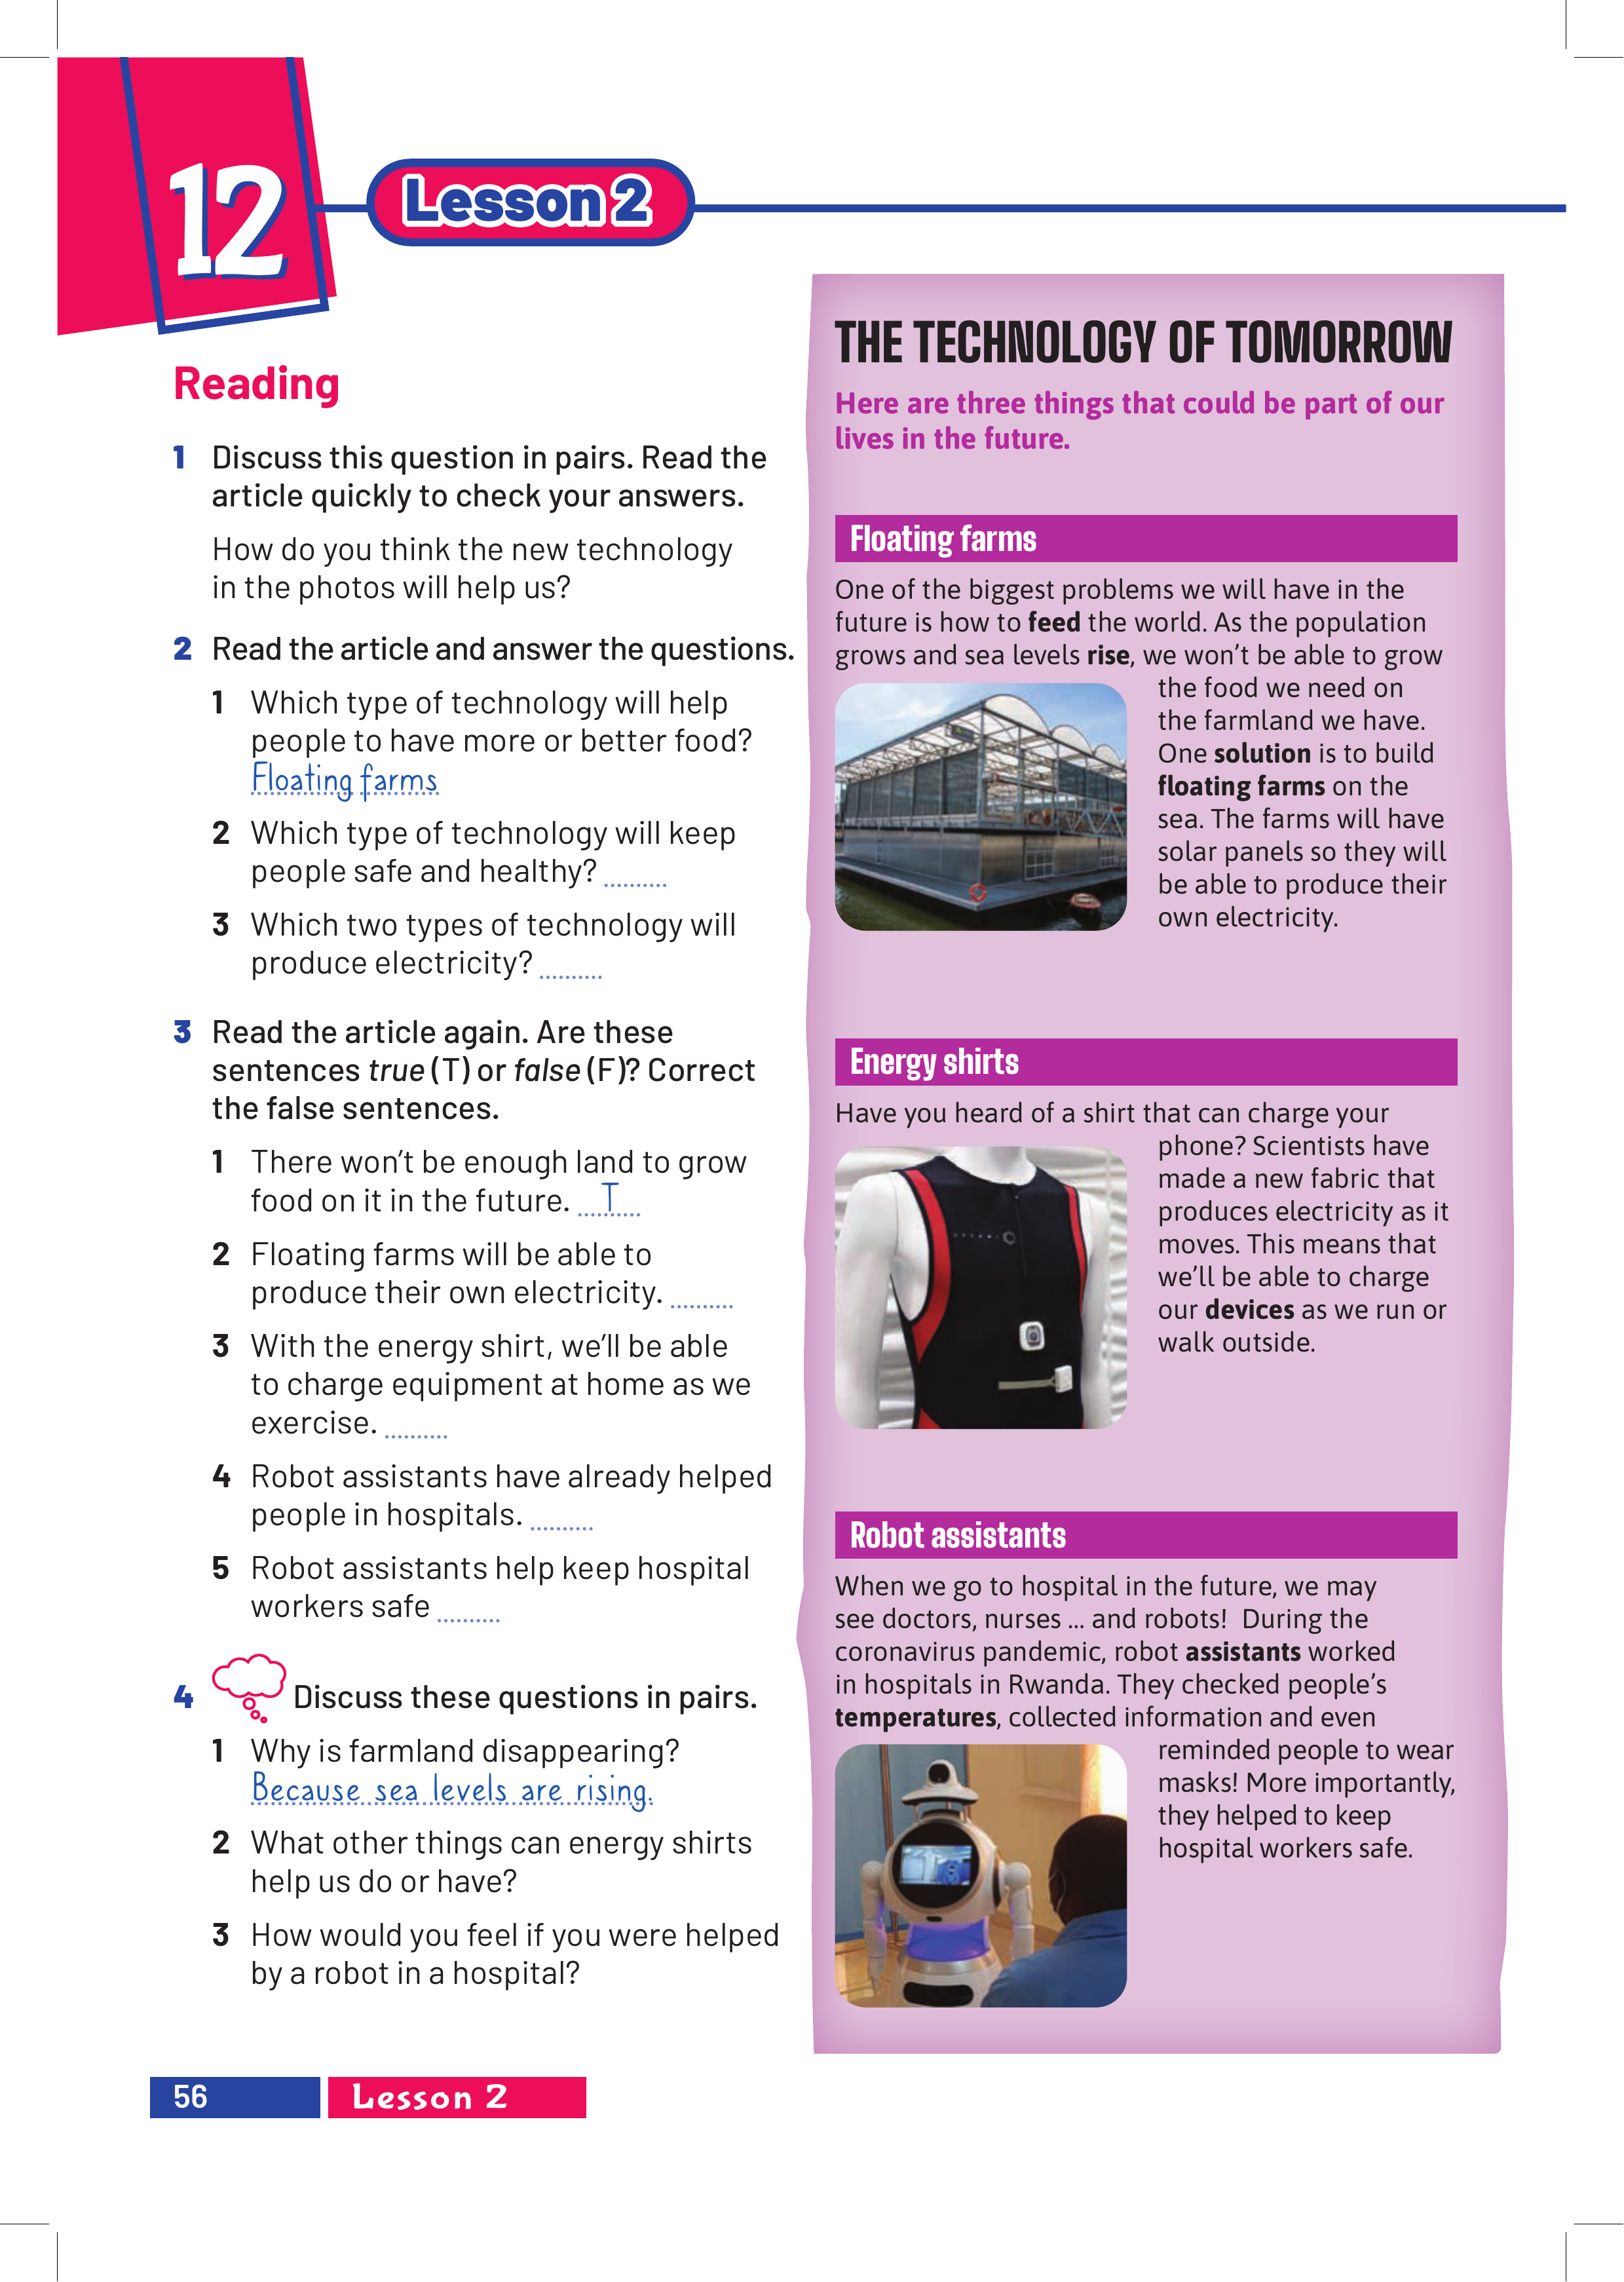 12
Lesson 2
Reading
1 Discuss this question in pairs. Read the
article quickly to check your answers.
How do you think the new technology
in the photos will help us?
2 Read the article and answer the questions.
1 Which type of technology will help
people to have more or better food?
Floating farms
2 Which type of technology will keep
people safe and healthy? ..........
3 Which two types of technology will
produce electricity? ..........
3 Read the article again. Are these
sentences true (T) or false (F)? Correct
the false sentences.
1 There won't be enough land to grow
food on it in the future. T
2 Floating farms will be able to
produce their own electricity. ..........
3 With the energy shirt, we'll be able
to charge equipment at home as we
exercise. ..........
4 Robot assistants have already helped
people in hospitals. ..........
5 Robot assistants help keep hospital
workers safe ..........
4 Discuss these questions in pairs.
1 Why is farmland disappearing?
Because sea levels are rising.
2 What other things can energy shirts
help us do or have?
3 How would you feel if you were helped
by a robot in a hospital?
THE TECHNOLOGY OF TOMORROW
Here are three things that could be part of our
lives in the future.
Floating farms
One of the biggest problems we will have in the
future is how to feed the world. As the population
grows and sea levels rise, we won't be able to grow
the food we need on
the farmland we have.
One solution is to build
floating farms on the
sea. The farms will have
solar panels so they will
be able to produce their
own electricity.
Energy shirts
Have you heard of a shirt that can charge your
phone? Scientists have
made a new fabric that
produces electricity as it
moves. This means that
we'll be able to charge
our devices as we run or
walk outside.
Robot assistants
When we go to hospital in the future, we may
see doctors, nurses ... and robots! During the
coronavirus pandemic, robot assistants worked
in hospitals in Rwanda. They checked people's
temperatures, collected information and even
reminded people to wear
masks! More importantly,
they helped to keep
hospital workers safe.
56
Lesson 2